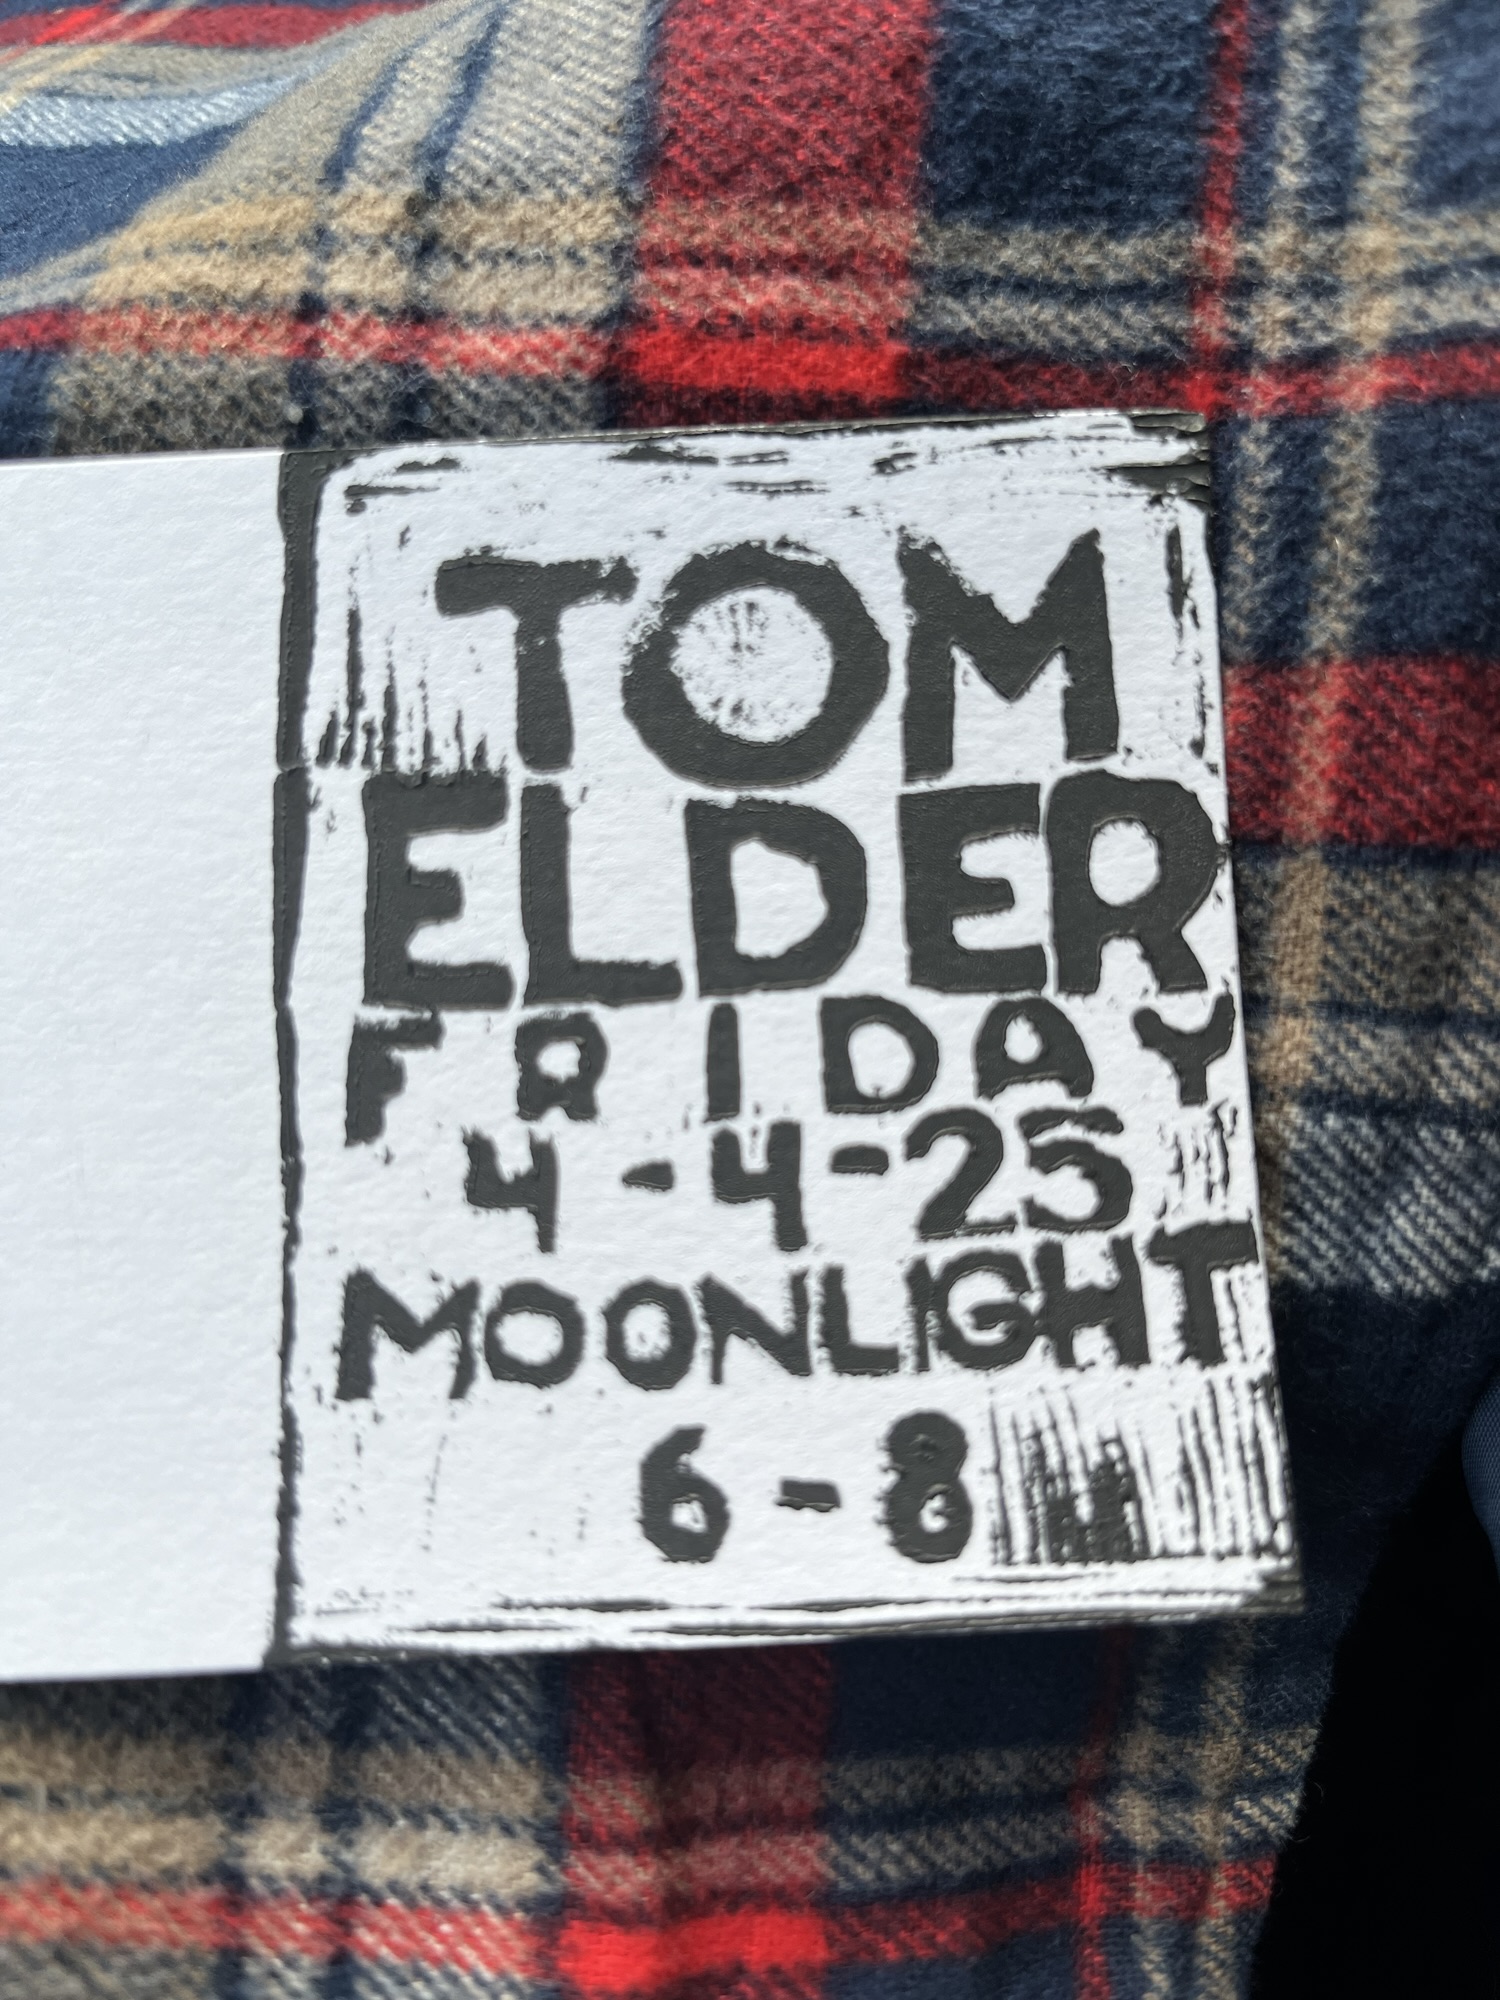 TOM
ELDER
FRIDAY
4-4-25
MOONLIGHT
6-8